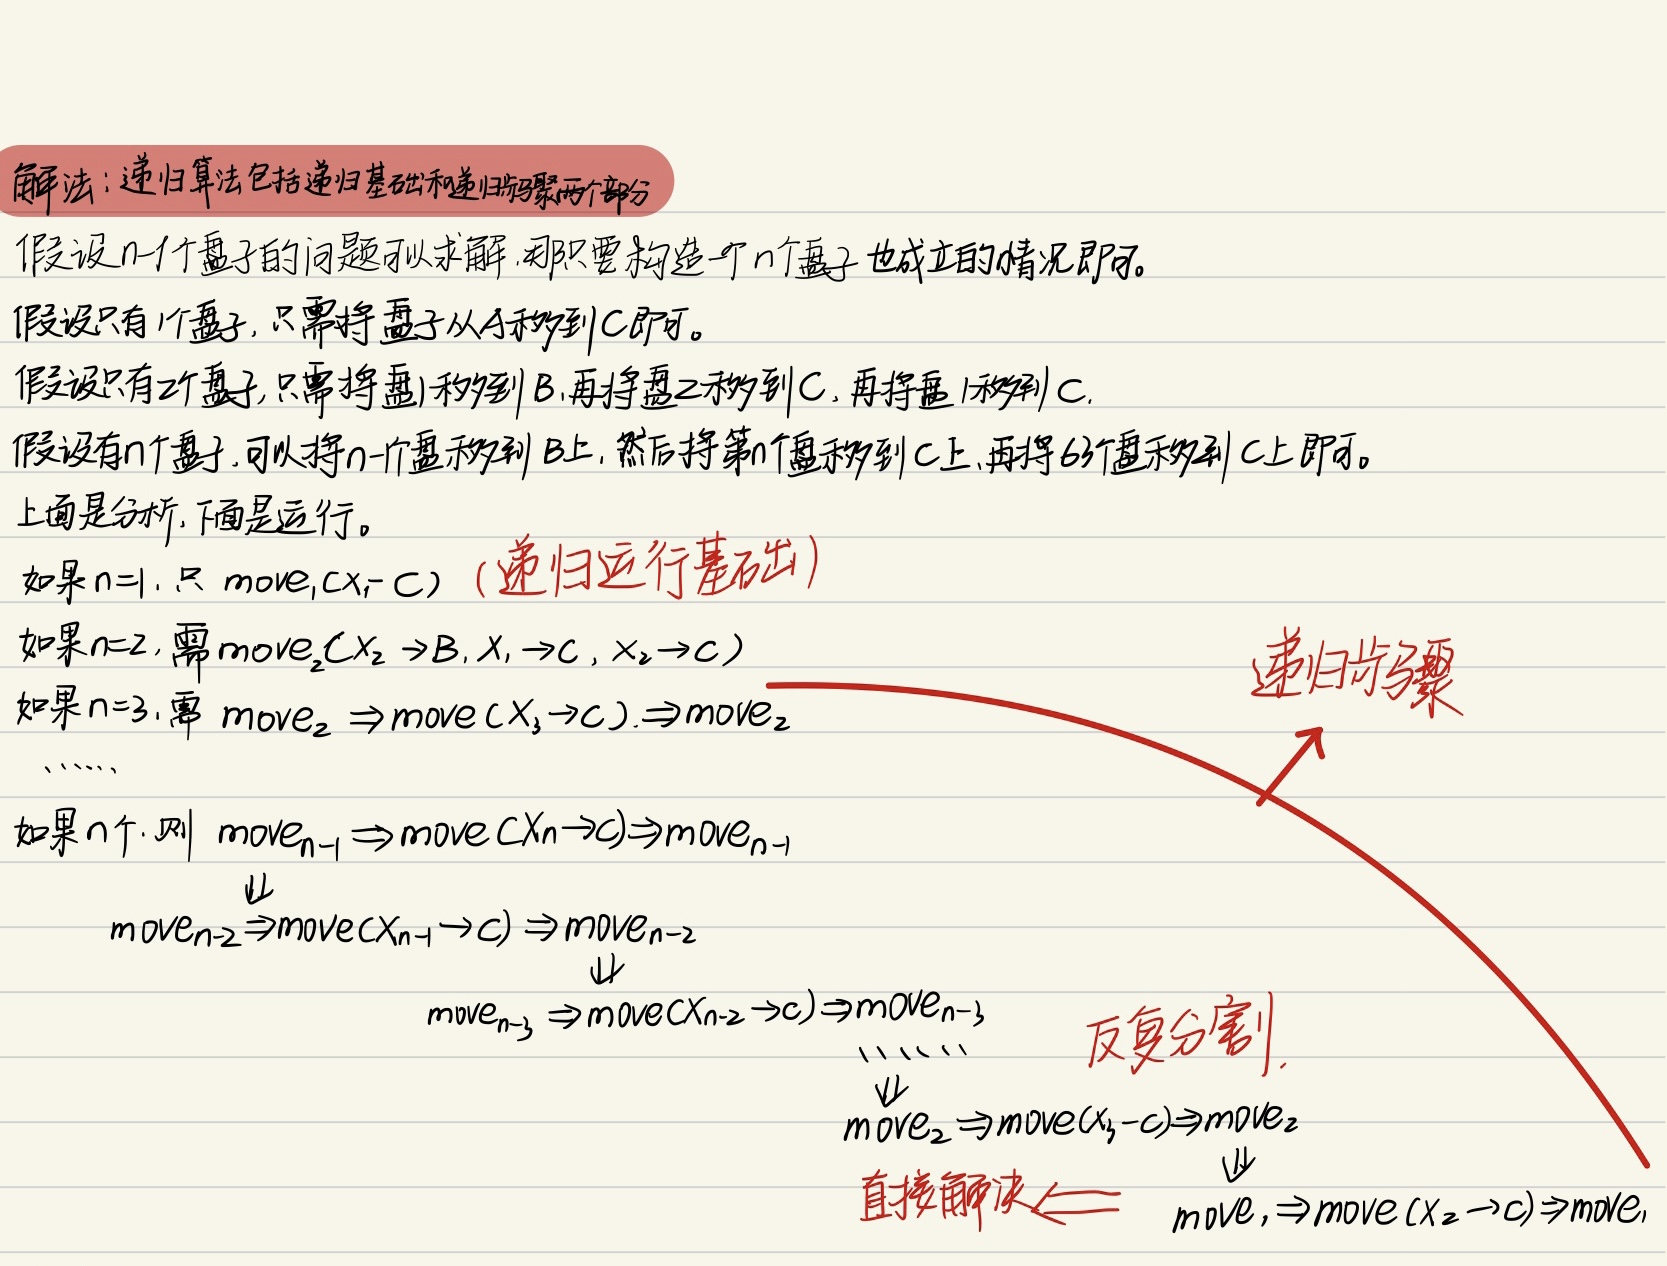 解法：递归算法包括递归基础和递归步骤两个部分
假设n-1个盘子的问题可以求解，那只要构造一个n个盘子也成立的情况即可。
假设只有1个盘子，只需将盘子从A移到C即可。
假设只有2个盘子，只需将盘1移到B，再将盘2移到C，再将盘1移到C.
假设有n个盘子，可以将n-1个盘移到B上，然后将第n个盘移到C上，再将63个盘移到C上即可。
上面是分析，下面是运行。
如果n=1，只 move₁(x₁-C) (递归运行基础)
如果n=2，需move₂(x₂→B, x₁→C, x₂→C)
递归步骤
如果n=3，需 move₂ ⇒ move(x₃→C).⇒move₂
......
如果n个，则 moveₙ₋₁ ⇒ move(xₙ→C)⇒moveₙ₋₁
⇓
moveₙ₋₂⇒move(xₙ₋₁→C) ⇒ moveₙ₋₂
⇓
moveₙ₋₃ ⇒ move(xₙ₋₂→C)⇒moveₙ₋₃
......
反复分割.
⇓
move₂ ⇒move(x₃-C)⇒move₂
⇓
直接解决 ⇐
move₁ ⇒move(x₂→C)⇒move₁